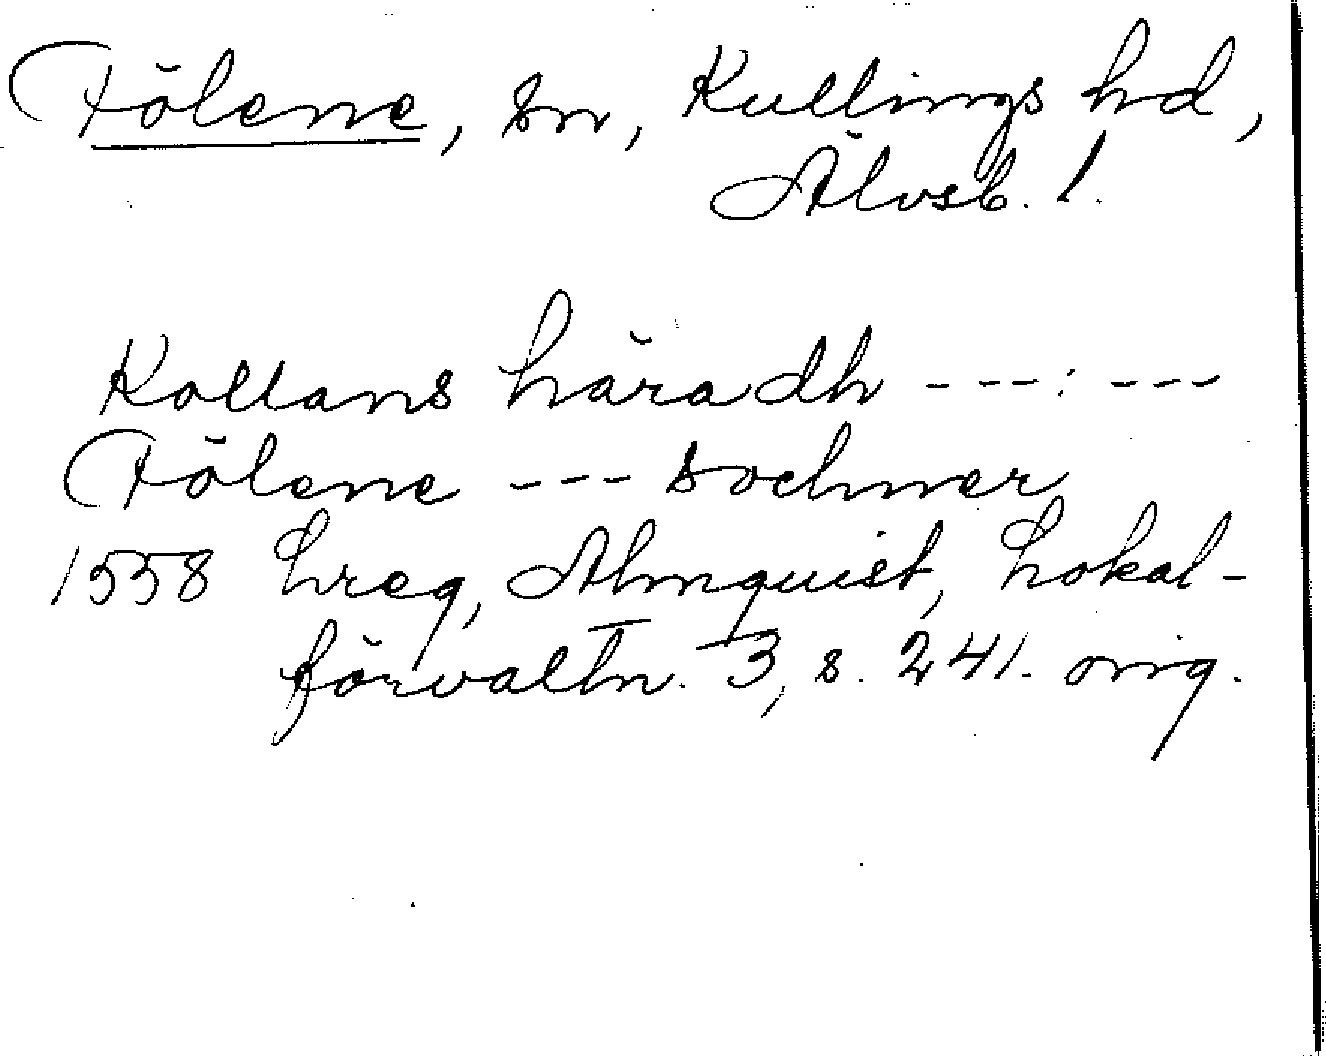 Fölene, sn, Kullings hd,
Älvsb. l.
Kollans häradh - - - : - - -
Fölene - - - sochner
1558 hreg, Almquist, Lokal-
förvaltn. 3, s. 241. orig.